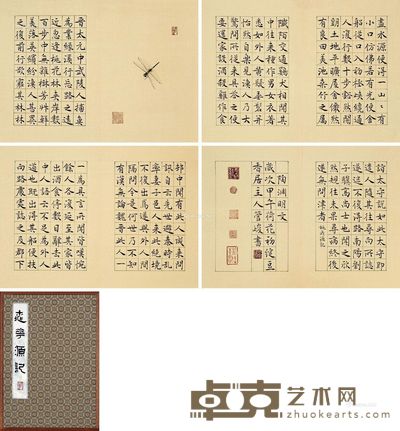 晉太元中武陵人捕魚
為業緣溪行忘路之遠
近忽逢桃花林夾岸數
百步中無雜樹芳草鮮
美落英繽紛漁人甚異
之復前行欲窮其林林
盡水源便得一山〻有
小口仿佛若有光便舍
船從口入初極狹纔通
人復行數十步豁然開
朗土地平曠屋舍儼然
有良田美池桑竹之屬
阡陌交通雞犬相聞其
中往來種作男女衣著
悉如外人黃髮垂髫並
怡然自樂見漁人乃大
驚問所從來具答之便
要還家設酒殺雞作食
邨中聞有此人咸來問
訊自云先世避秦時亂
率妻子邑人來此絕境
不復出焉遂與外人間
隔問今是何世乃不知
有漢無論魏晉此人一
一為具言所聞皆嘆惋
餘人各復延至其家皆
出酒食停數日辭去此
中人語云不足為外人
道也既出得其船便扶
向路處處誌之及郡下
詣太守說如此太守即
遣人隨其往尋向所誌
遂迷不復得路南陽劉
子驥高尚士也聞之欣
然規往未果尋病終後
遂無問津者 桃花源記
陶淵明文
歲次甲午荷花初綻豆
香居主人管峻書
桃花源記
卓克艺术网
zhuokearts.com